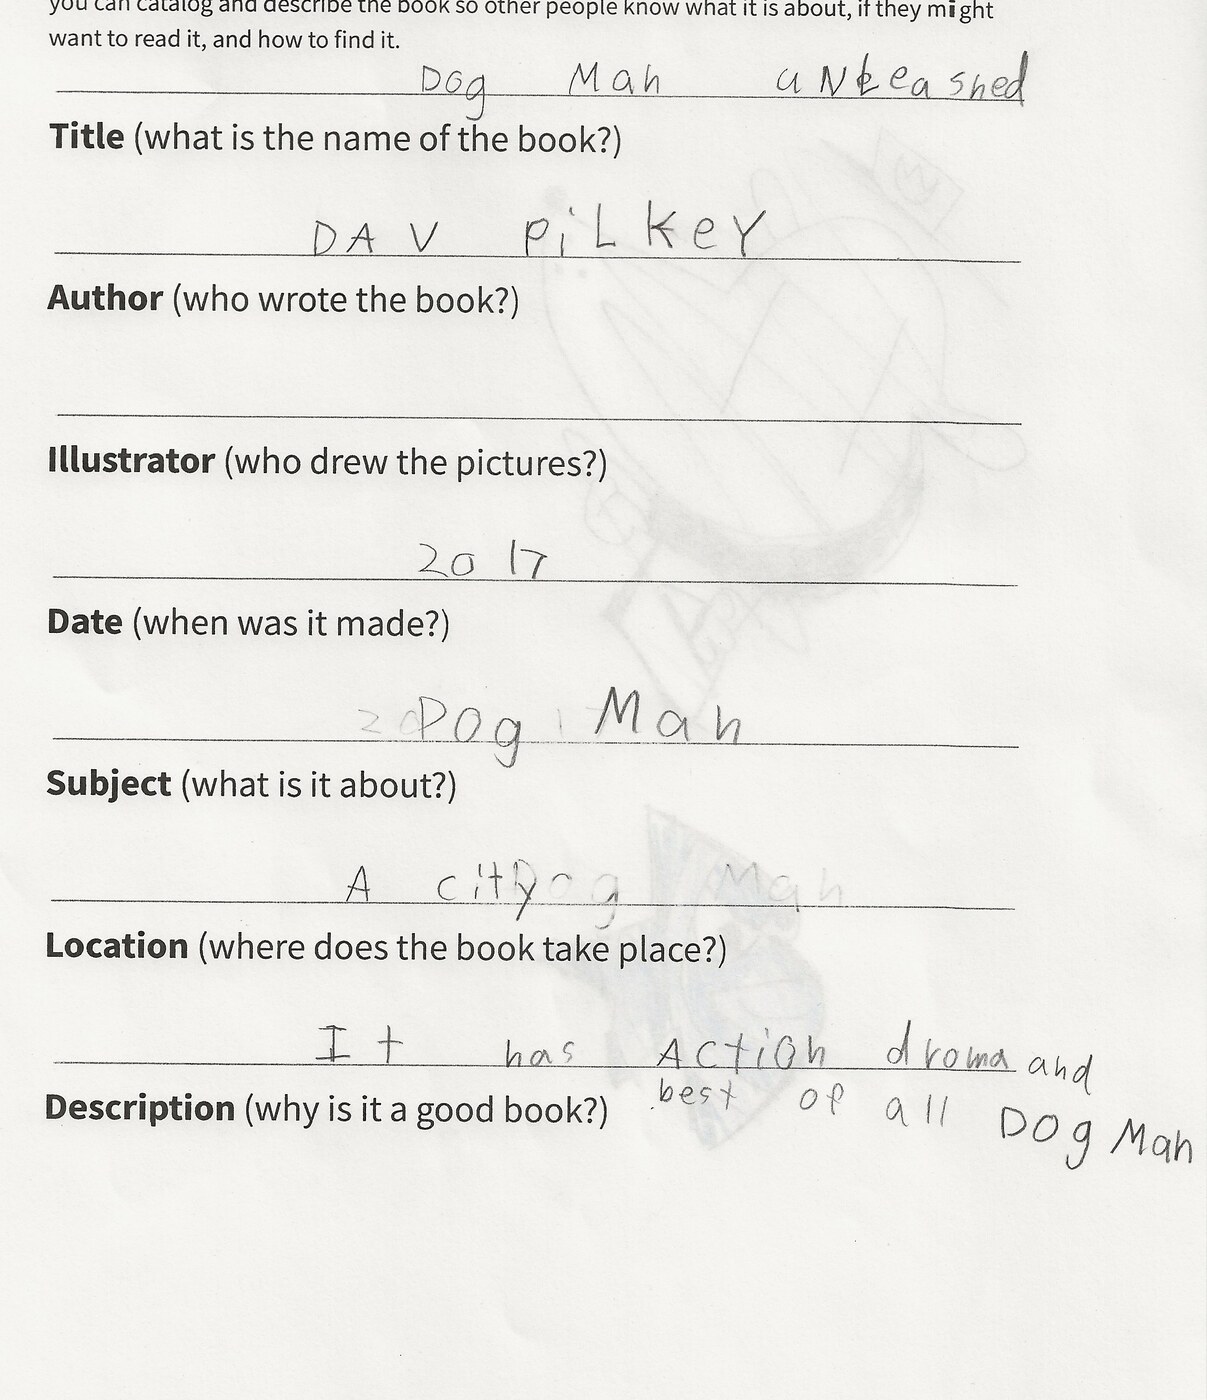 you can catalog and describe the book so other people know what it is about, if they might
want to read it, and how to find it.
Dog Man unleashed
Title (what is the name of the book?)
DAV PiLkeY
Author (who wrote the book?)
Illustrator (who drew the pictures?)
2017
Date (when was it made?)
Dog Man
Subject (what is it about?)
A city
Location (where does the book take place?)
It has Action droma and
Description (why is it a good book?) best of all Dog Man